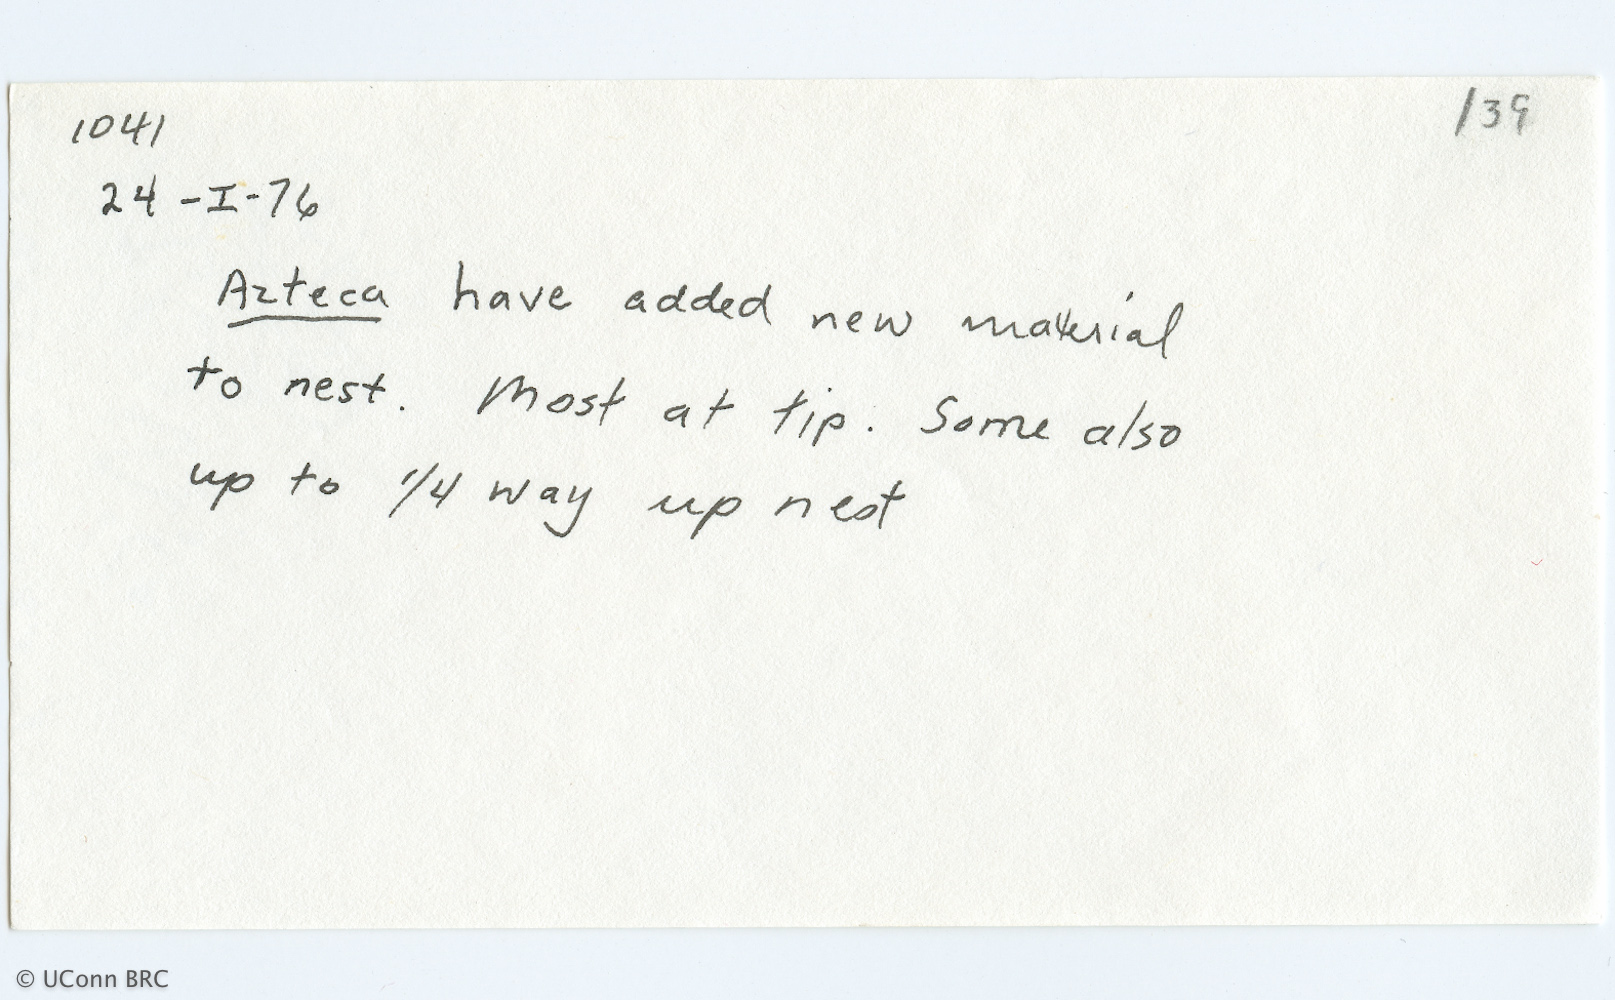 1041
139
24-I-76
Azteca have added new material
to nest. Most at tip. Some also
up to 1/4 way up nest
© UConn BRC